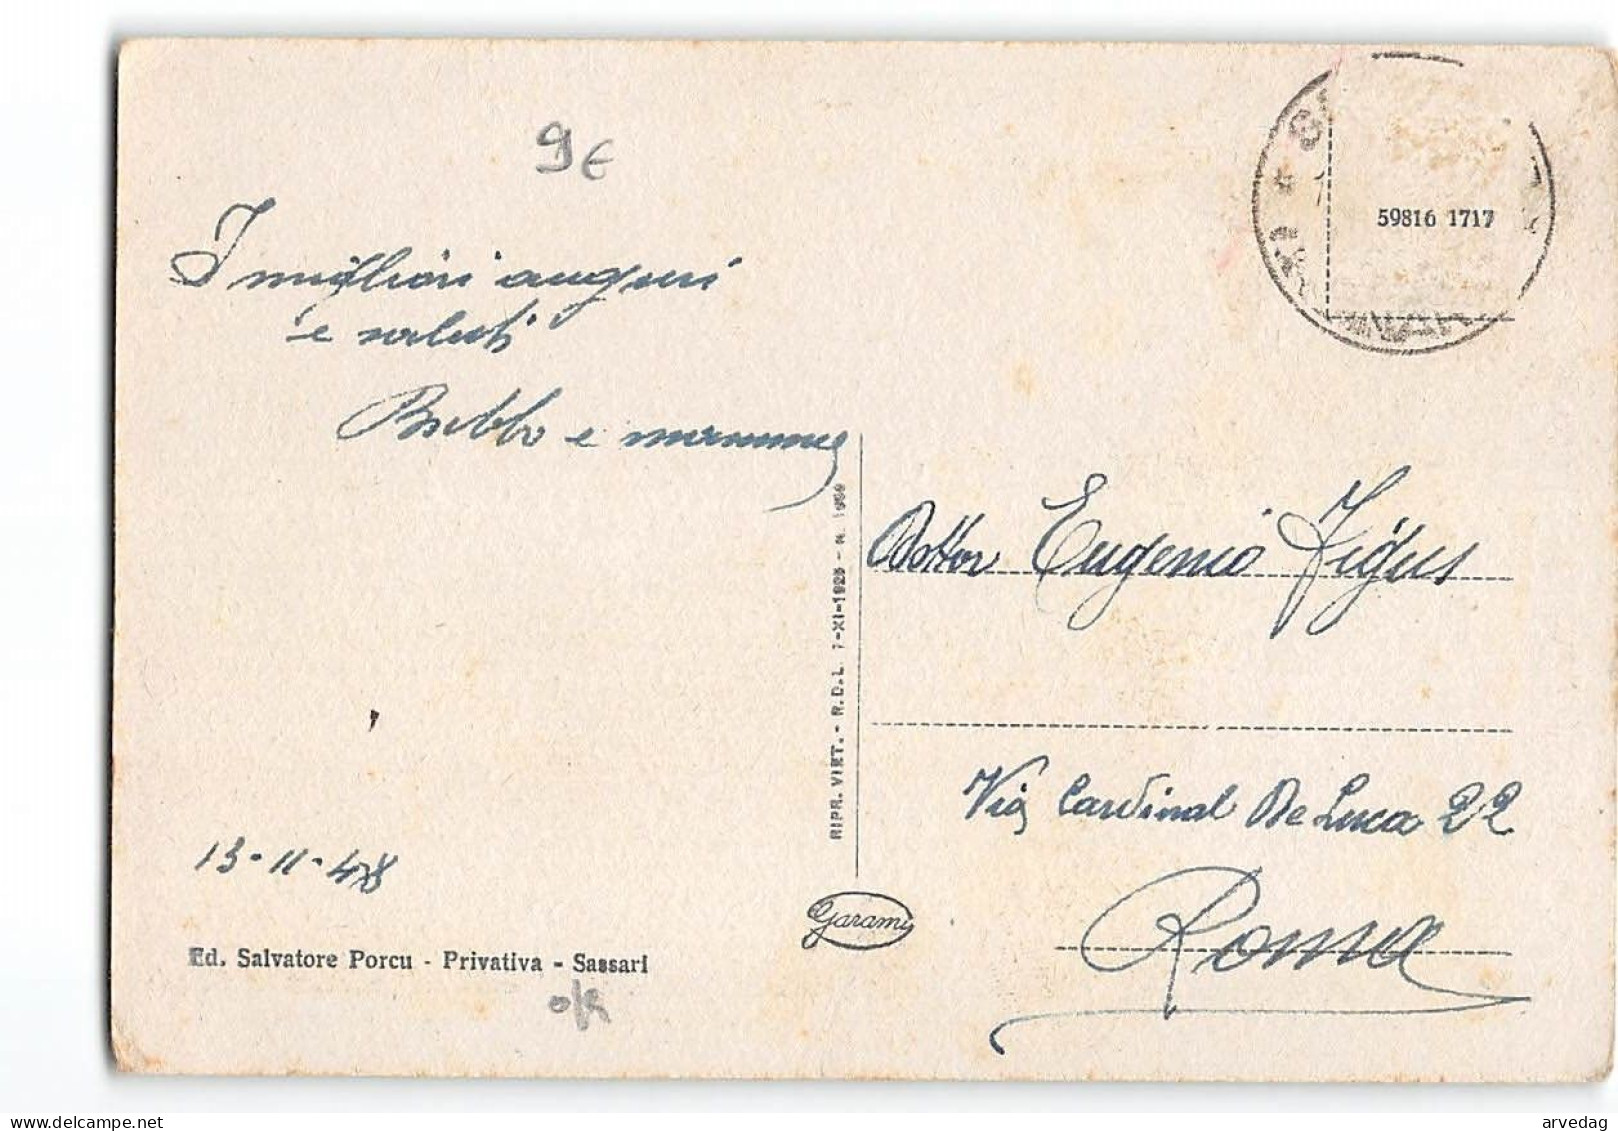 9€
59816 1717
I migliori auguri
e saluti
Babbo e mamma
Dottor Eugenio Figus
Via Cardinal De Luca 22
Roma
13-11-48
RIPR. VIET. - R.D.L. 7-XI-1925 - N. 1950
Garami
Ed. Salvatore Porcu - Privativa - Sassari
ok
arvedag